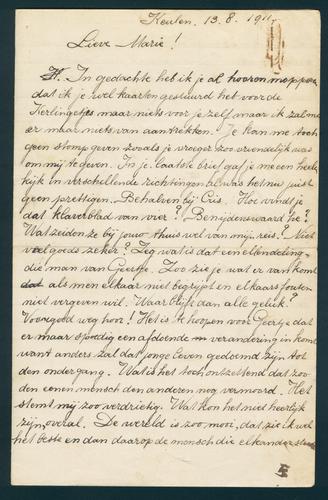 Keulen, 13.8.1911.
Lieve Marie!
In gedachte heb ik je al hooren mopperen
dat ik je wel kaarten gestuurd heb voor de
Kerlingetjes maar niets voor je zelf maar ik zal me
er maar niets van aantrekken. Je kan me toch
geen stomp geven zooals je vroeger zoo vriendelijk was
om mij te geven. In je laatste brief gaf je me een heele
kijk in verschillende richtingen al was het nu juist
geen prettigen. Behalven bij Cris. Hoe vindt je
dat klaverblad van vier? Benijdenswaard hè?
Wat zeiden ze bij jouw thuis wel van mijn reis? Niet
veel goeds zeker? Zeg wat is dat een ellendeling
die man van Geertje. Zoo zie je wat er van komt
als men elkaar niet begrijpt en elkaars fouten
niet vergeven wil. Waar blijft dan alle geluk?
Voorgoed weg hoor! Het is te hoopen voor Geertje dat
er maar spoedig een afdoende verandering in komt
want anders zal dat jonge leven gedoemd zijn tot
den ondergang. Wat is het toch ontzettend dat zoo
den eenen mensch den anderen nog vermoord. Het
stemt mij zoo verdrietig. Wat kon het niet heerlijk
zijn overal. De wereld is zoo mooi, dat zie ik wel
het beste en dan daarop de mensch die elkander